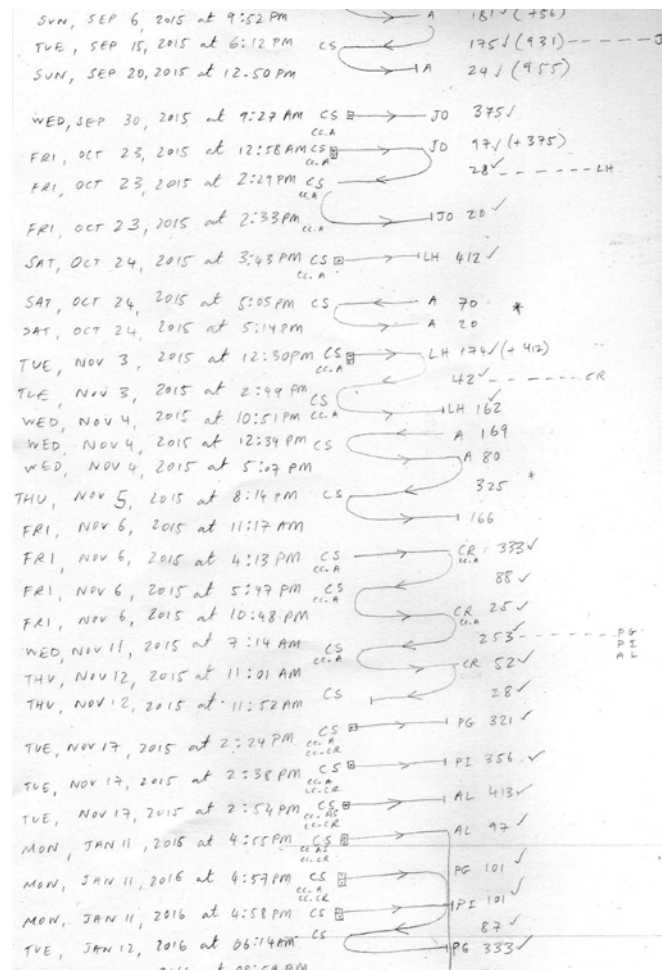 SUN, SEP 6, 2015 at 9:52PM A 181√(756)
TUE, SEP 15, 2015 at 6:12PM CS 175√(931) J
SUN, SEP 20, 2015 at 12.50PM A 24√(955)
WED, SEP 30, 2015 at 9:27AM CS JO 375√
cc.A
FRI, OCT 23, 2015 at 12:58AM CS JO 97√(+375)
cc.A
28√ LH
FRI, OCT 23, 2015 at 2:29PM CS
cc.A
FRI, OCT 23, 2015 at 2:33PM JO 20√
cc.A
SAT, OCT 24, 2015 at 3:43PM CS LH 412√
cc.A
SAT, OCT 24, 2015 at 5:05PM CS A 70 *
SAT, OCT 24, 2015 at 5:14PM A 20
TUE, NOV 3, 2015 at 12:30PM CS LH 174√(+412)
cc.A
TUE, NOV 3, 2015 at 2:49PM CS 42√ CR
WED, NOV 4, 2015 at 10:51PM cc.A LH 162√
WED, NOV 4, 2015 at 12:34PM CS A 169
WED, NOV 4, 2015 at 5:07PM A 80
325 *
THU, NOV 5, 2015 at 8:14PM CS
FRI, NOV 6, 2015 at 11:17AM 166
FRI, NOV 6, 2015 at 4:13PM CS CR 333√
cc.A cc.A
FRI, NOV 6, 2015 at 5:47PM CS 88√
cc.A
FRI, NOV 6, 2015 at 10:48PM CR 25√
cc.A
WED, NOV 11, 2015 at 7:14AM CS 253√ PG
cc.A PI
AL
THU, NOV 12, 2015 at 11:01AM CR 52√
THU, NOV 12, 2015 at 11:52AM CS 28√
TUE, NOV 17, 2015 at 2:24PM CS PG 321√
cc.A
cc.CR
TUE, NOV 17, 2015 at 2:38PM CS PI 356√
cc.A
cc.CR
TUE, NOV 17, 2015 at 2:54PM CS AL 413√
cc.CR
MON, JAN 11, 2015 at 4:55PM CS AL 97√
cc.CR
MON, JAN 11, 2016 at 4:57PM CS PG 101√
cc.A
cc.CR
MON, JAN 11, 2016 at 4:58PM CS PI 101√
87√
TUE, JAN 12, 2016 at 06:14AM CS PG 333√